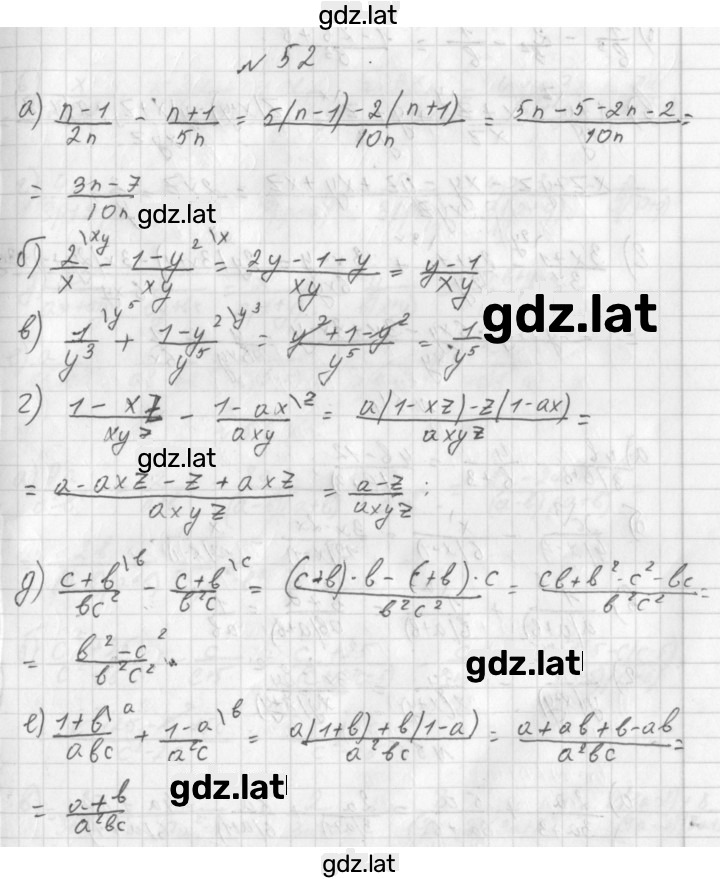 gdz.lat
№ 52
а) (n-1)/(2n) - (n+1)/(5n) = (5(n-1)-2(n+1))/(10n) = (5n-5-2n-2)/(10n) =
= (3n-7)/(10n)
gdz.lat
б) 2\xy/x - (1-y²\x)/(xy) = (2y-1-y)/(xy) = (y-1)/(xy)
gdz.lat
в) 1\y⁵/y³ + (1-y²\y³)/y⁵ = (y²+1-y²)/y⁵ = 1/y⁵
г) (1-xz)/(xyz) - (1-ax\z)/(axy) = (a(1-xz)-z(1-ax))/(axyz) =
gdz.lat
= (a-axz-z+axz)/(axyz) = (a-z)/(axyz);
д) (c+b\b)/(bc²) - (c+b\c)/(b²c) = ((c+b)·b-(c+b)·c)/(b²c²) = (cb+b²-c²-bc)/(b²c²) =
= (b²-c²)/(b²c²).
gdz.lat
е) (1+b\a)/(abc) + (1-a\b)/(a²c) = (a(1+b)+b(1-a))/(a²bc) = (a+ab+b-ab)/(a²bc) =
gdz.lat
gdz.lat
= (a+b)/(a²bc)
gdz.lat